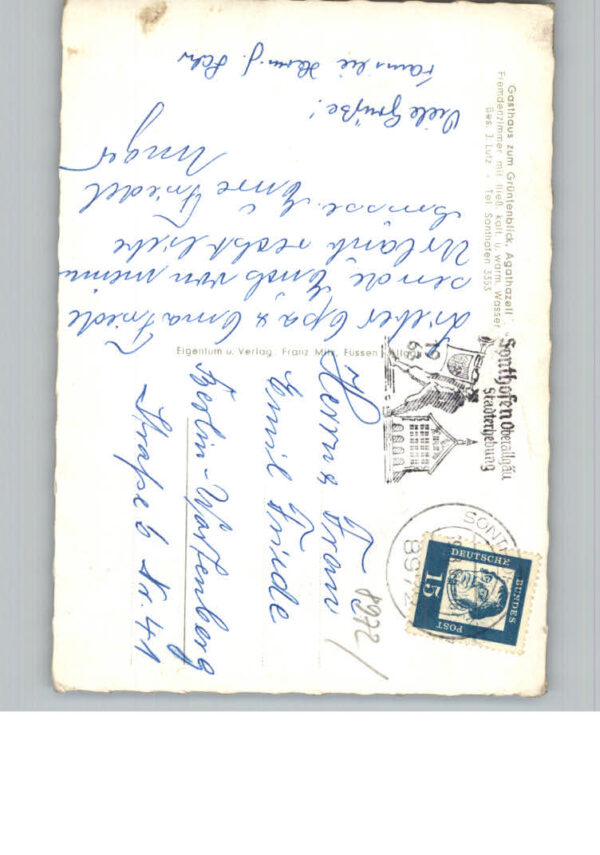 Gasthaus zum Grüntenblick, Agathazell
Fremdenzimmer mit fließ. kalt. u. warm. Wasser
Bes. J. Lutz - Tel. Sonthofen 3353
Lieber Opa & Oma Friede
sende Euch von meinem
Urlaub recht liebe
Grüsse.
Viele Grüße!
Familie
Eigentum u. Verlag: Franz Milz, Füssen
19
63
Sonthofen Oberallgäu
Stadterhebung
8972
DEUTSCHE
BUNDES
POST
15
8972
Herrn & Frau
Emil Friede
Berlin-Wartenberg
Straße 6 Nr. 41